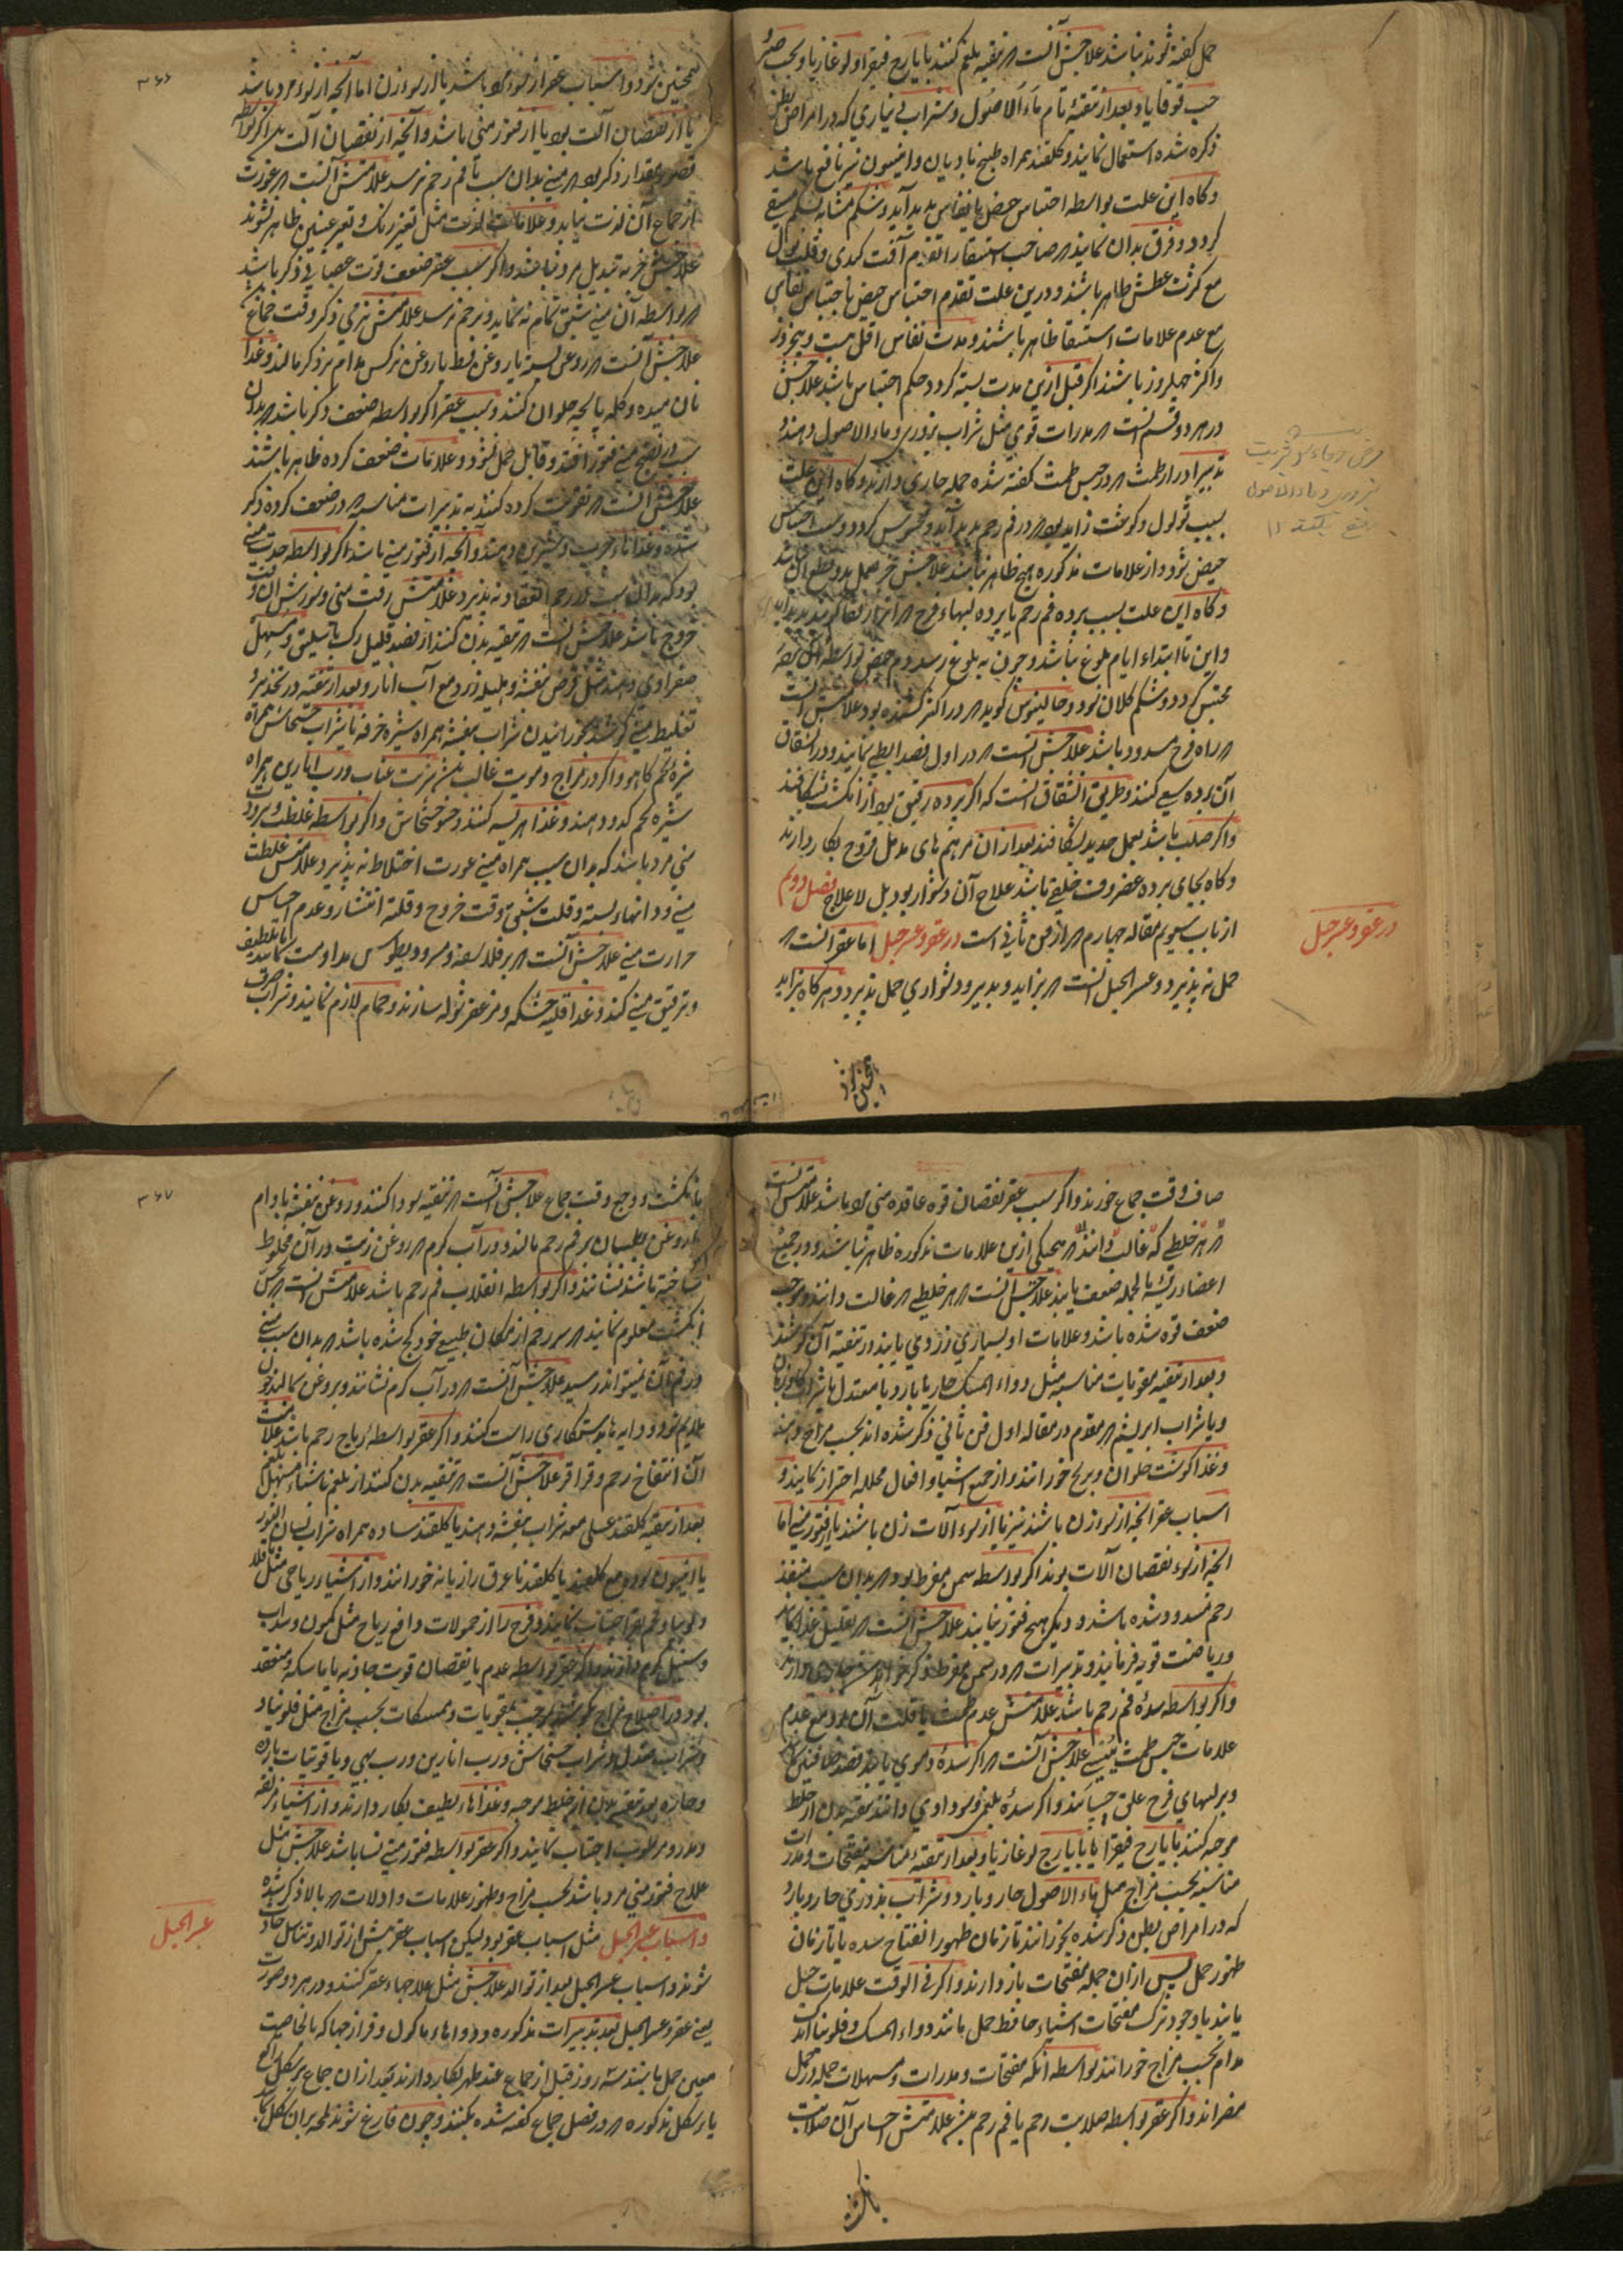 حمل کفته شوند نباشد علاجش آنست که تنقیه بلغم کنند با یارج فیقرا و لوغازیا و بحب صبر
حب قوقایا و بعد از تنقیهٔ تام ماء الاصول و شراب دیناری که در امراض بطن
ذکر شده استعمال نمایند و کلقند همراه طبیخ بادیان و انیسون نیز نافع باشد
و کاه این علت بواسطه احتباس حیض یا نفاس پدید آید و شکم مشابه شکم مستسقی
کردد و فرق بدان نمایند که صاحب استسقا را تقدم آفت کبدی و قلت بول
مع کثرت عطش ظاهر باشند و درین علت تقدم احتباس حیض یا احتباس نفاس
مع عدم علامات استسقا ظاهر باشند و مدت نفاس اقل بیست و پنج روز
و اکثر چهل روز باشند اکر قبل ازین مدت بسته کردد حکم احتباس باشد علاجش
در هر دو قسم آنست که مدرات قوی مثل شراب بزوری و ماء الاصول دهند و
تدبیر ادرار طمث که در حبس طمث کفته شده جمله جاری دارند و کاه این علت
بسبب ثولول و کوشت زاید بود که در فم رحم پدید آید و محتبس کردد و سبب احتباس
حیض شود و از علامات مذکوره هیچ ظاهر نباشند علاجش
و کاه این علت بسبب پرده فم رحم یا پرده لبهاء فرج که
و این تا ابتداء ایام بلوغ نباشد و چون به بلوغ رسد دم حیض بواسطه آن پرده
محتبس کردد و شکم کلان بود و جالینوس کوید که در اکثر کشنده بود علامتش آنست
که راه فرج مسدود باشد علاجش آنست که در اول فصد ابطی نمایند و در انشقاق
آن پرده سعی کنند و طریق انشقاق آنست که اکر پرده رقیق بود از انکشت بشکافند
و اکر صلب باشد بعمل حدید بشکافند بعد از ان مرهم های مدمل قروح بکار دارند
و کاه بجای پرده غضروف خلقی باشد علاج آن دشوار بود بل لاعلاج فصل دویم
از باب سیوم مقاله چهارم که از فن ثانی است در عقر و عسر حبل اما عقر آنست که
حمل نه پذیرد و عسر الحبل آنست که بزاید و بدیر و دشواری حمل پذیرد و هر کاه بزاید
در عقر و عسر حبل
۳۶۶
همچنین شود و اسباب عقر از نوع مرد باشد یا از نوع زن اما آنچه از نوع مرد باشد
یا از نقصان آلت بود یا از فتور منی باشد و آنچه از نقصان آلت بود اکر بواسطه
قصور مقدار ذکر بود که منی بدان سبب تا فم رحم نرسد علامتش آنست که عورت
از جماع آن لذت نیابد و علامات لذت مثل تغیر رنک و تغیر عینین ظاهر نشوند
علاجش جز به تبدیل مرد نباشد و اکر سبب عقر ضعف قوت عصبانی ذکر باشد
که بواسطه آن منی تمام نه نماید و برحم نرسد علامتش نرمی ذکر وقت جماع
علاجش آنست که روغن پسته یا روغن بط یا روغن نرکس مدام بر ذکر مالند و غذا
نان میده و کله پاچه حلوان کنند و سبب عقر اکر بواسطه ضعف ذکر باشد که بدان
سبب در نضج منی فتور افتد و قابل حمل نشود و علامات ضعف کرده ظاهر باشند
علاجش آنست که تقویت کرده کنند به تدبیرات مناسبه که در ضعف کرده ذکر
شده و غذاهاء چرب و شیرین دهند و آنچه از فتور منی باشد اکر بواسطه حدت منی
بود که بدان سبب در رحم انعقاد نه پذیرد علامتش رقت منی و سوزش آن وقت
خروج باشد علاجش آنست که تنقیه بدن کنند از فصد قلیل رک باسلیق و مسهل
صفراوی دهند مثل قرص بنفشه و هلیله زرد مع آب انار و بعد از تنقیه در تبرید و
تغلیظ منی کوشند بخورانیدن شراب بنفشه همراه شیره خرفه یا شراب خشخاش همراه
شیره تخم کاهو و اکر در مزاج دمویت غالب باشد شربت عناب و رب انارین همراه
شیره تخم کدو دهند و غذا هریسه کنند و حسو خشخاش و اکر بواسطه غلظت و برودت
منی مرد باشد که بدان سبب همراه منی عورت اختلاط نه پذیرد علامتش غلظت
منی و دانهاء بسته و قلت شبق وقت خروج و قلة انتشار و عدم احساس
حرارت منی علاجش آنست که بر فلاسفه و مسرودیطوس مداومت نمایند تا تلطیف
و ترقیق منی کند و غذا قلیه خشکه و مزعفر شوله سازند و حمام لازم نمایند و شراب صرف
همچنین شود
صاف وقت جماع خورند و اکر سبب عقر نقصان قوه عاقده منی بود باشد علامتش آنست
که هر خلطی که غالب دانند که هیچیکی ازین علامات مذکوره ظاهر نباشند و در جمیع
اعضاء رئیسه بالجمله ضعف یابند علاجش آنست که هر خلطی که غالب دانند و موجب
ضعف قوه شده باشد و علامات او بسیاری زردی یابند در تنقیه آن کوشند
و بعد از تنقیه مقویات مناسبه مثل دواء المسک حار یا بارد یا معتدل یا شراب کاوزبان
و یا شراب ابریشم که مقدم در مقاله اول فن ثانی ذکر شده اند بحسب مزاج دهند
و غذا کوشت حلوان و برنج خورانند و از جمیع اشیا و افعال محلله احتراز نمایند و
اسباب عقر آنچه از نوع زن باشند نیز یا از نوع آلات زن باشند یا از فتور منی اما
آنچه از نوع نقصان آلات بوند اکر بواسطه سمن مفرط بود که بدان سبب منفذ
رحم مسدود شده باشد و دیکر هیچ فتور نیابند علاجش آنست که تقلیل غذا نمایند
و ریاضت قویه فرمایند و تدبیرات که در سمن مفرط ذکر خواهد شد جاری دارند
و اکر بواسطه سدهٔ فم رحم باشد علامتش عدم طمث یا قلت آن بود مع عدم
علامات حبس طمث علاجش آنست که اکر سدهٔ دموی یابند فصد صافین کنند
و بر لبهای فرج علق چسپانند و اکر سدهٔ بلغمی و سوداوی دانند تنقیه بدن از خلط
موجبه کنند بایارج فیقرا یا بایارج لوغازیا و بعد از تنقیه مناسبه مفتحات و مدرات
مناسبه بحسب مزاج مثل ماء الاصول حار و بارد و شراب بزوری حار و بارد
که در امراض بطن ذکر شده بخورانند تا زمان ظهور انفتاح سده یا تا زمان
ظهور حمل پس از ان جمله مفتحات باز دارند و اکر فی الوقت علامات حبل
یابند باوجود ترک مفتحات اشیاء حافظ حمل مانند دواء المسک و فلونیا
مدام بحسب مزاج خورانند بواسطه آنکه مفتحات و مدرات و مسهلات جمله در حمل
مضر اند و اکر عقر بواسطه صلابت رحم یا فم رحم علامتش احساس آن صلابت
۳۶۷
بانکشت و وجع وقت جماع علاجش آنست که تنقیه سودا کنند و روغن بنفشه بادام
یا روغن بلسان بر فم رحم مالند و در آب کرم که روغن زیت در آن مخلوط
ساخته باشند نشانند و اکر بواسطه انقلاب فم رحم باشد علامتش آنست که بحس
انکشت معلوم نمایند که سر رحم از مکان طبیعی خود کج شده باشد که بدان سبب منی
در فم آن نمیتواند رسید علاجش آنست که در آب کرم نشانند و بروغن بمالند چون
ملایم شود دایه بدستکاری راست کند و اکر عقر بواسطهٔ ریاح رحم باشد علامت
آن انتفاخ رحم و قراقر علاجش آنست که تنقیه بدن کنند از بلغم
بعد از تنقیه کلقند عسلی مع شراب بنفشه دهند یا کلقند ساده همراه شراب لسان الثور
یا انیسون بود مع کلقند یا کلقند با عرق رازیانه خورانند و از اشیاء ریاحی مثل باقلا
و لوبیا و غیره اجتناب نمایند و فرج را از حمولات دافع ریاح مثل کمون و سداب
و سنبل کرم دارند و اکر عقر بواسطه عدم یا نقصان قوت جاذبه یا ماسکه و منعقده
بود در اصلاح مزاج کوشند بموجب مقویات و ممسکات بحسب مزاج مثل فلونیا و
و شراب صندل و شراب خشخاش و رب انارین و رب بهی و یاقوتیات بارده
و حاره بعد تنقیه بدن از خلط موجبه و غذاهاء لطیف بکار دارند و از اشیاء مزلقه
و مدر و مرطوب اجتناب نمایند و اکر عقر بواسطه فتور منی نسا باشد علاجش مثل
علاج فتور منی مرد باشد بحسب مزاج و ظهور علامات و دلالات که بالا ذکر شده
و اسباب عسر الحبل مثل اسباب عقر بود لیکن اسباب عقر پیش از توالد و تناسل حادث
شوند و اسباب عسر الحبل بعد از توالد علاجش مثل علاجهاء عقر کنند و در هر دو صورت
یعنی عقر و عسر الحبل بعد تدبیرات مذکوره و دواهاء ماکول و فرازجها که بالخاصیت
معین حمل باشند سه روز قبل از جماع عند طهر بکار دارند بعد از ان جماع بر شکل
یا بر شکل مذکوره که در فصل جماع کفته شده بکنند و چون فارغ شوند لمحه بران شکل
عسر الحبل
بانکشت